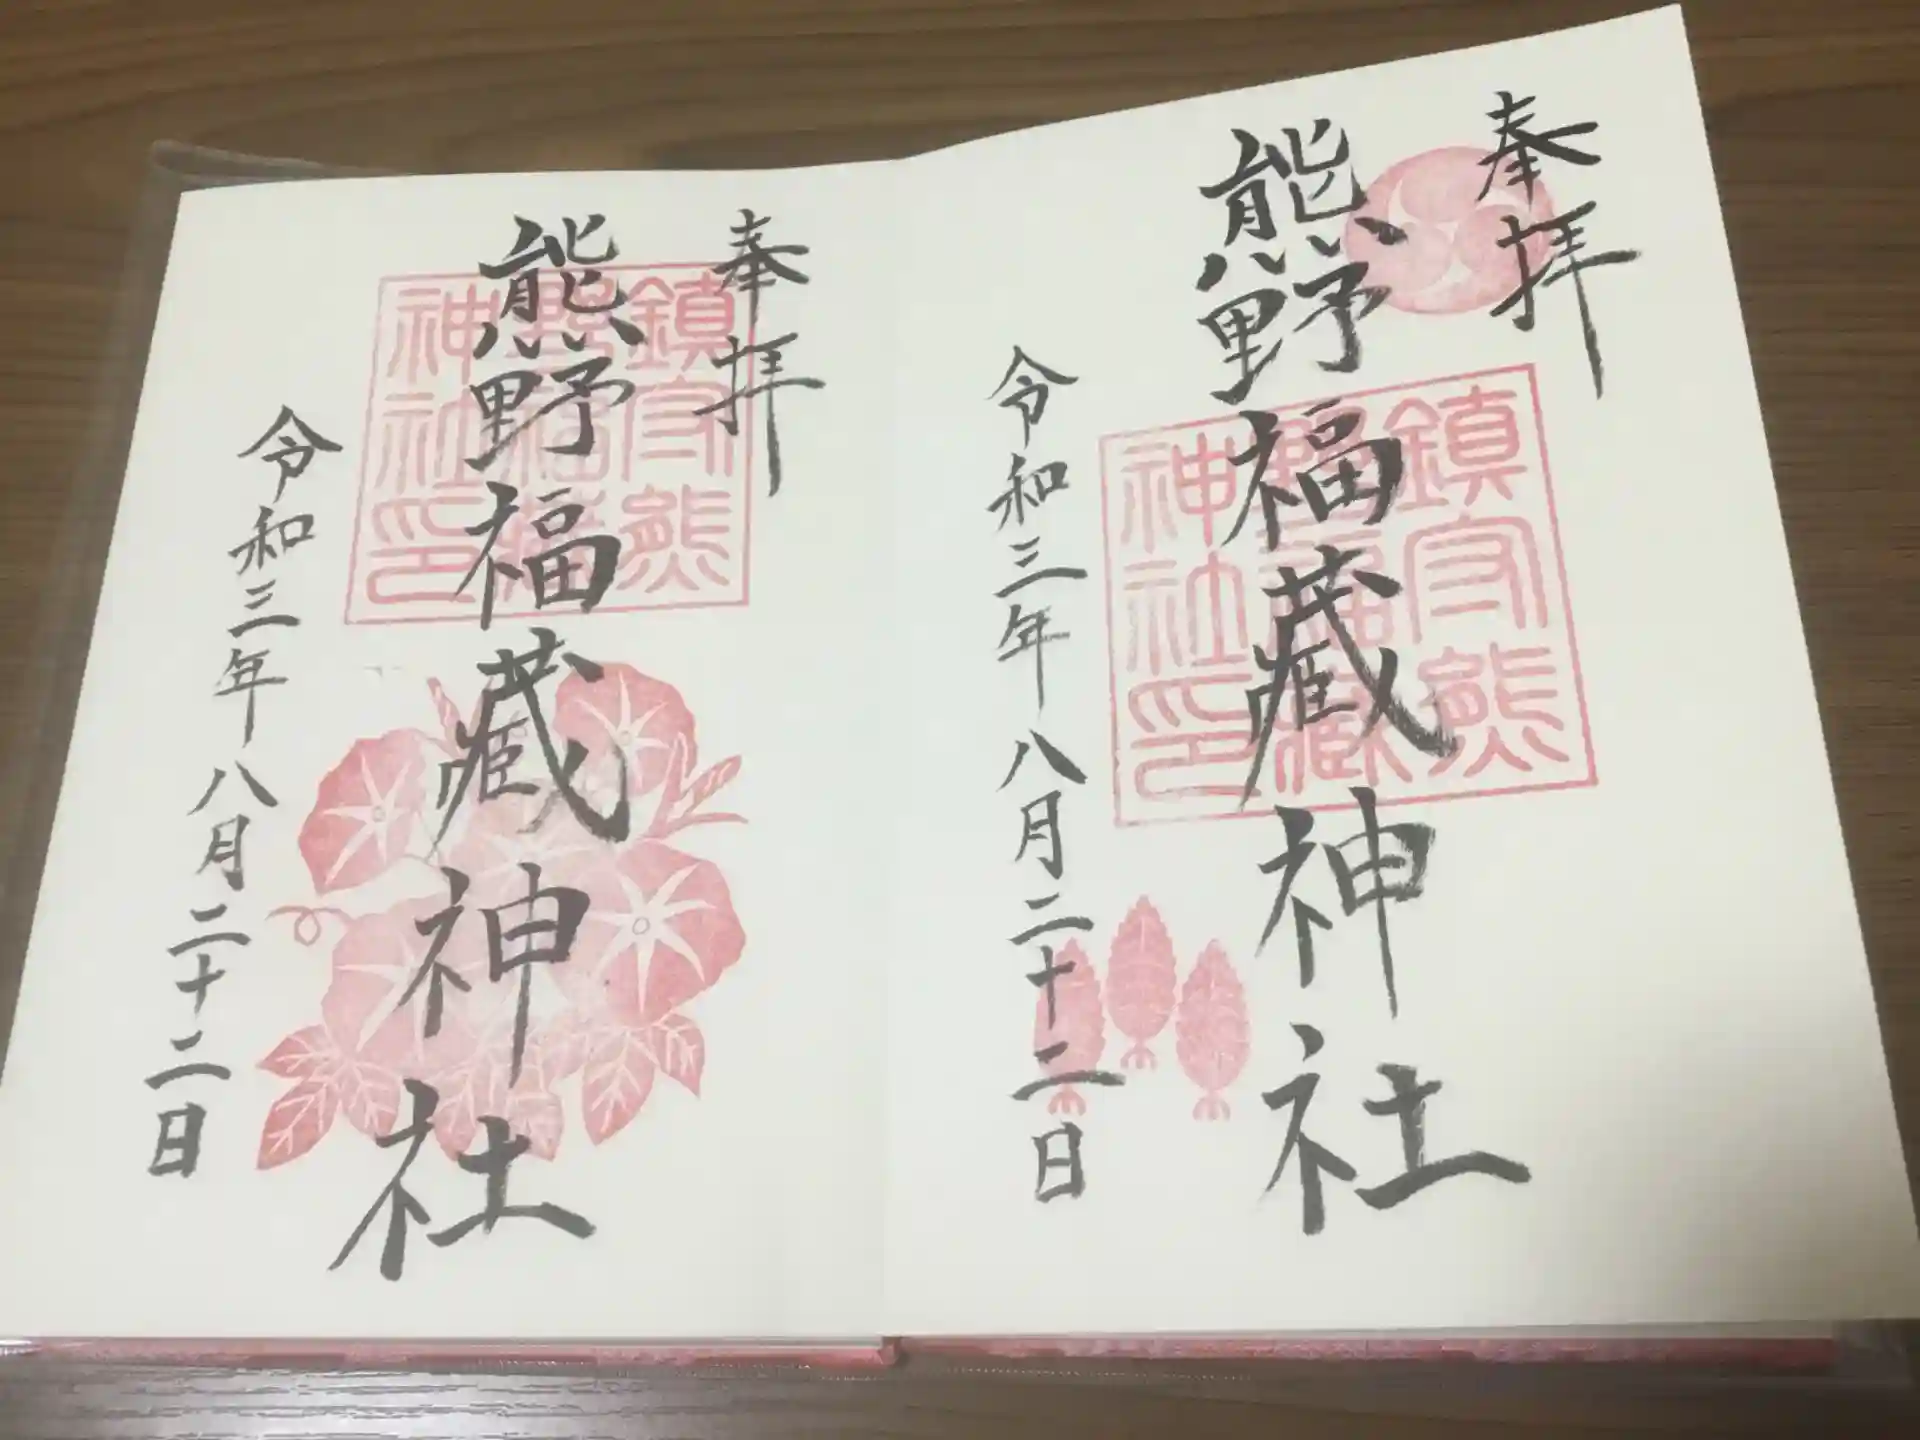 奉拝
熊野福藏神社
鎮守熊
野福藏
神社印
令和三年八月二十二日
奉拝
熊野福藏神社
鎮守熊
野福藏
神社印
令和三年八月二十二日